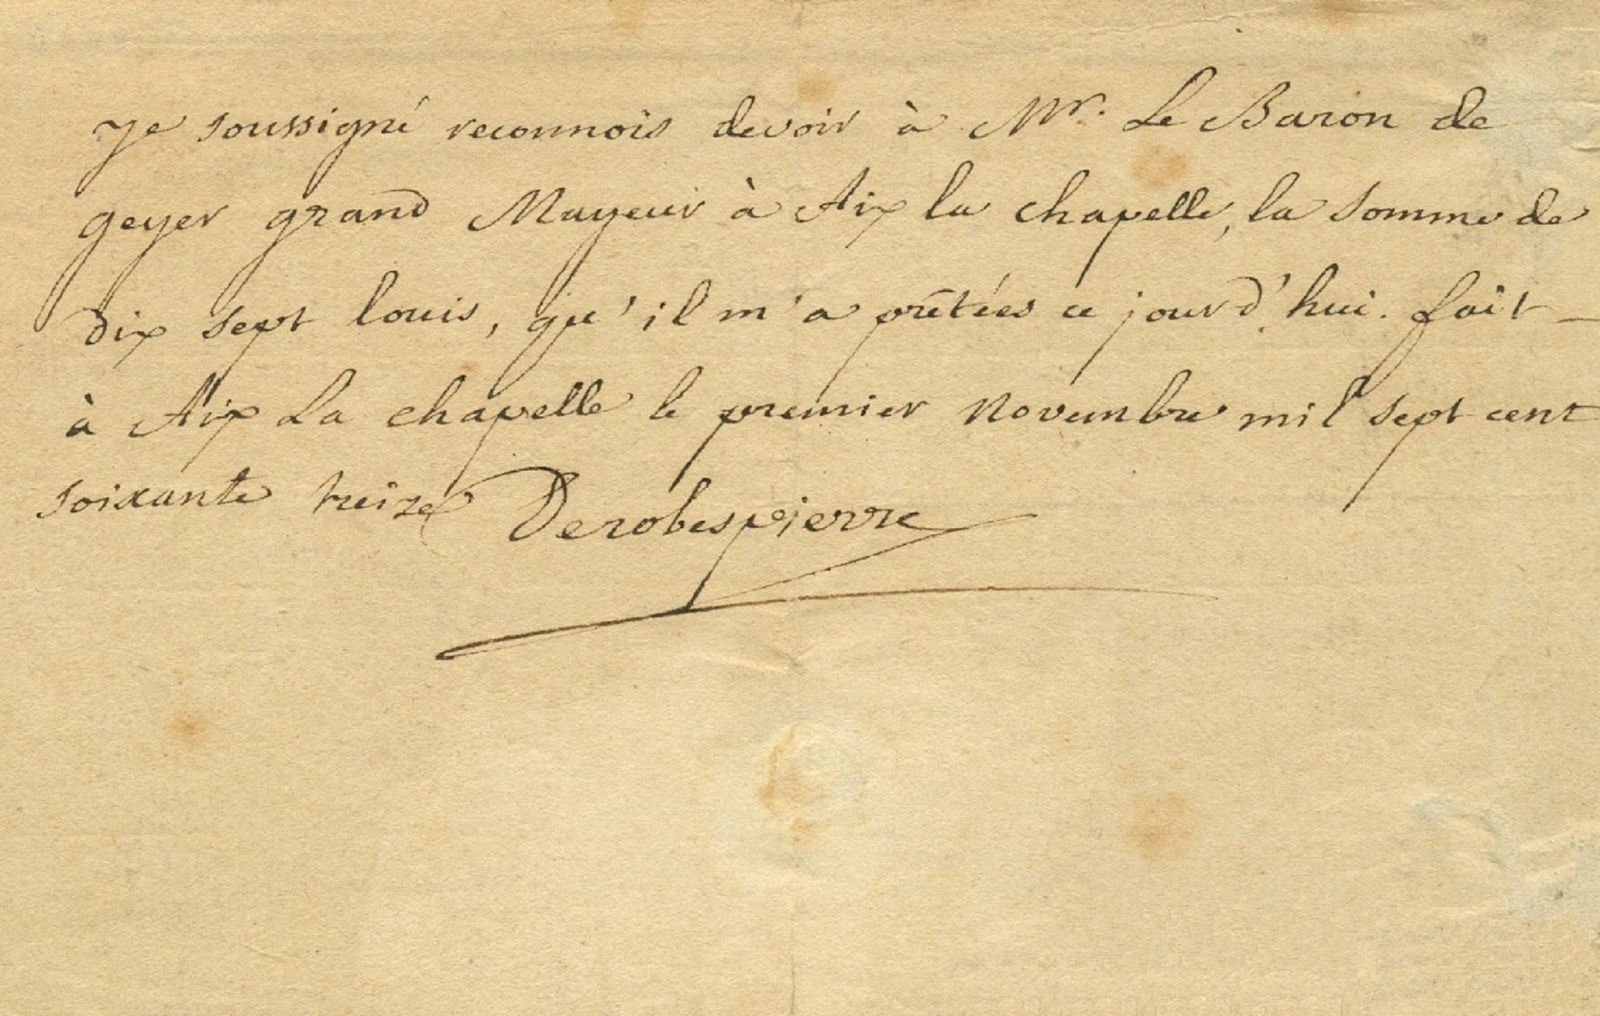 Je soussigné reconnois devoir à Mr. Le Baron de
geyer grand Mayeur à Aix la chapelle, la somme de
dix sept louis, qu'il m'a prêtées ce jourd'hui. fait
à Aix La chapelle le premier novembre mil sept cent
soixante treize Derobespierre